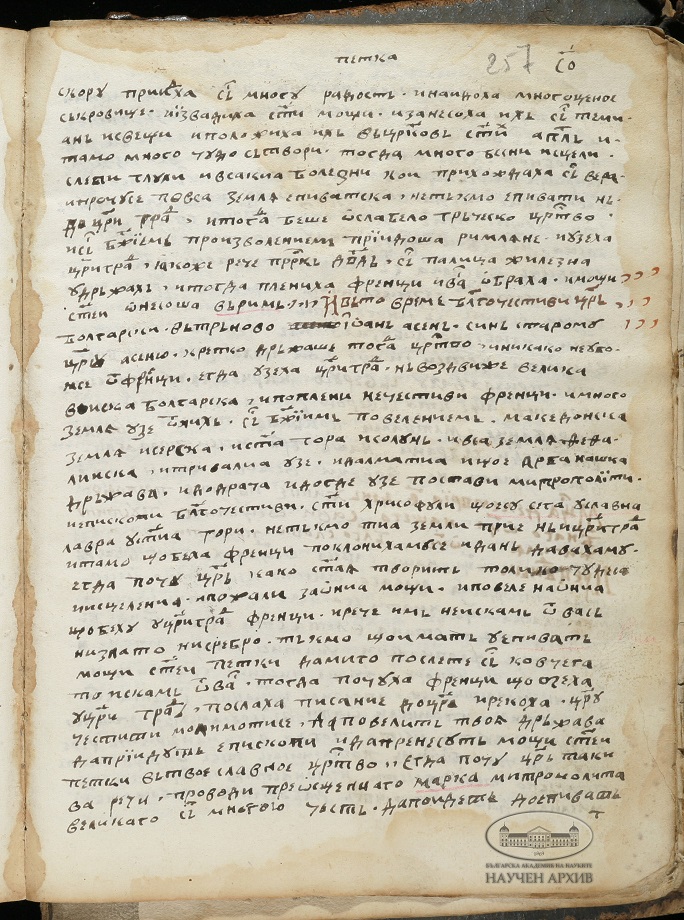 петка 257 с҃о
скору приидоха съ многу радость · инаидоха многоценое
съкровище · иизвадиха с҃ти мощи · изанесоха ихъ съ теми-
анъ исвещи иположиха ихъ въцр҃ковъ с҃тїи ап҃лъ и-
тамо много чудо сътвори · тогда много бесни исцели ·
слепи глухи ивсакиа болезни кои прихождаха съ вера ·
ипрочусе повса земля епиватска , нетькмо епивати нь-
до цр҃и гра҃ , итога҃ беше ѡслабело гръческо цр҃тво ·
исъ б҃жїемъ произволениемъ прїидоша римляне · иузеха
цр҃игра҃ , іакоже рече пр҃ркъ д҃вдъ · съ палица жилезна
удръжахъ , итогда плениха френци ивсѧ ѡбраха · имощи
с҃теи ѿнесоша въримъ · Ивьто време бл҃гочестиви цр҃ь
болгарски · вътръново іѡанъ асенъ · синъ старому
цр҃ю асеню · крепко дръжаше тога҃ цр҃тво , иникако неубо-
ясе ѿфренци · егда узеха цр҃игра҃ · нъвоздвиже велика
воиска болгарска , ипоплени нечестиви френци · имного
земля узе ѿнихъ · съ б҃жїимъ повелениемъ · македонска
земля исерска , ис҃та гора исолунъ · ивса земля
линска , итривалиа узе · идалматиа ище арбанашка
дръжава · идодрача идогде узе постави митрополїти ·
иепископи бл҃гочестиви · с҃ти хрисофули щоесу сега услабна
лавра ус҃тиа гори · нетькмо тиа земли прие ньицр҃игра҃
итамо щобеха френци поклонихамусе идань давахаму ·
егда почу цр҃ь како с҃тая творитъ толико чудеса
иисцеления · ипожали заѡниа мощи · иповеле наѡниа
щобеху уцр҃игра҃ френци · ирече имъ неискамъ ѿ васъ
низлато нисребро · тькмо щоиматъ уепиватъ
мощи с҃теи петки дамиго послете съ ковчега
то искамъ ѿва҃ · тогда почуха френци що
уцр҃и гра҃ , послаха писание доцр҃я ирекоха · цр҃у
честити молимотисе , даповелитъ твоя дръжава
даприидутъ епископи идапренесутъ мощи с҃теи
петки вътвое славное цр҃тво , Егда почу цр҃ь таки
ва речи , проводи преѡсщенаго марка митрополита
великаго съ многою честь · дапоидетъ доепиватъ
БЪЛГАРСКА АКАДЕМИЯ НА НАУКИТЕ
НАУЧЕН АРХИВ